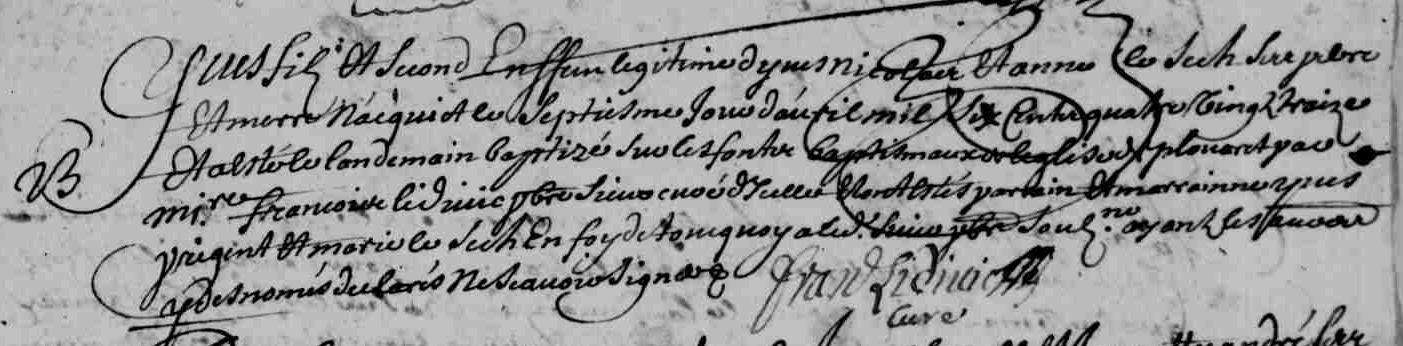 yves filz et second Enffan legitime dyves nicolas et anne le sech ses pere
et merre nacquit le septiesme Jour dauril mil six Cents quatre vingt traize
B et a esté le landemain baptizé sur les fonts baptismaux de leglise de plouaret par
mi.re francois pbre curé dicelle et ont estés parrain et marrainne yves
prigent et marie le sech En foy de tout quoy a led. soub. ayant les
denomés declarés ne scavoir signer
fran
curé